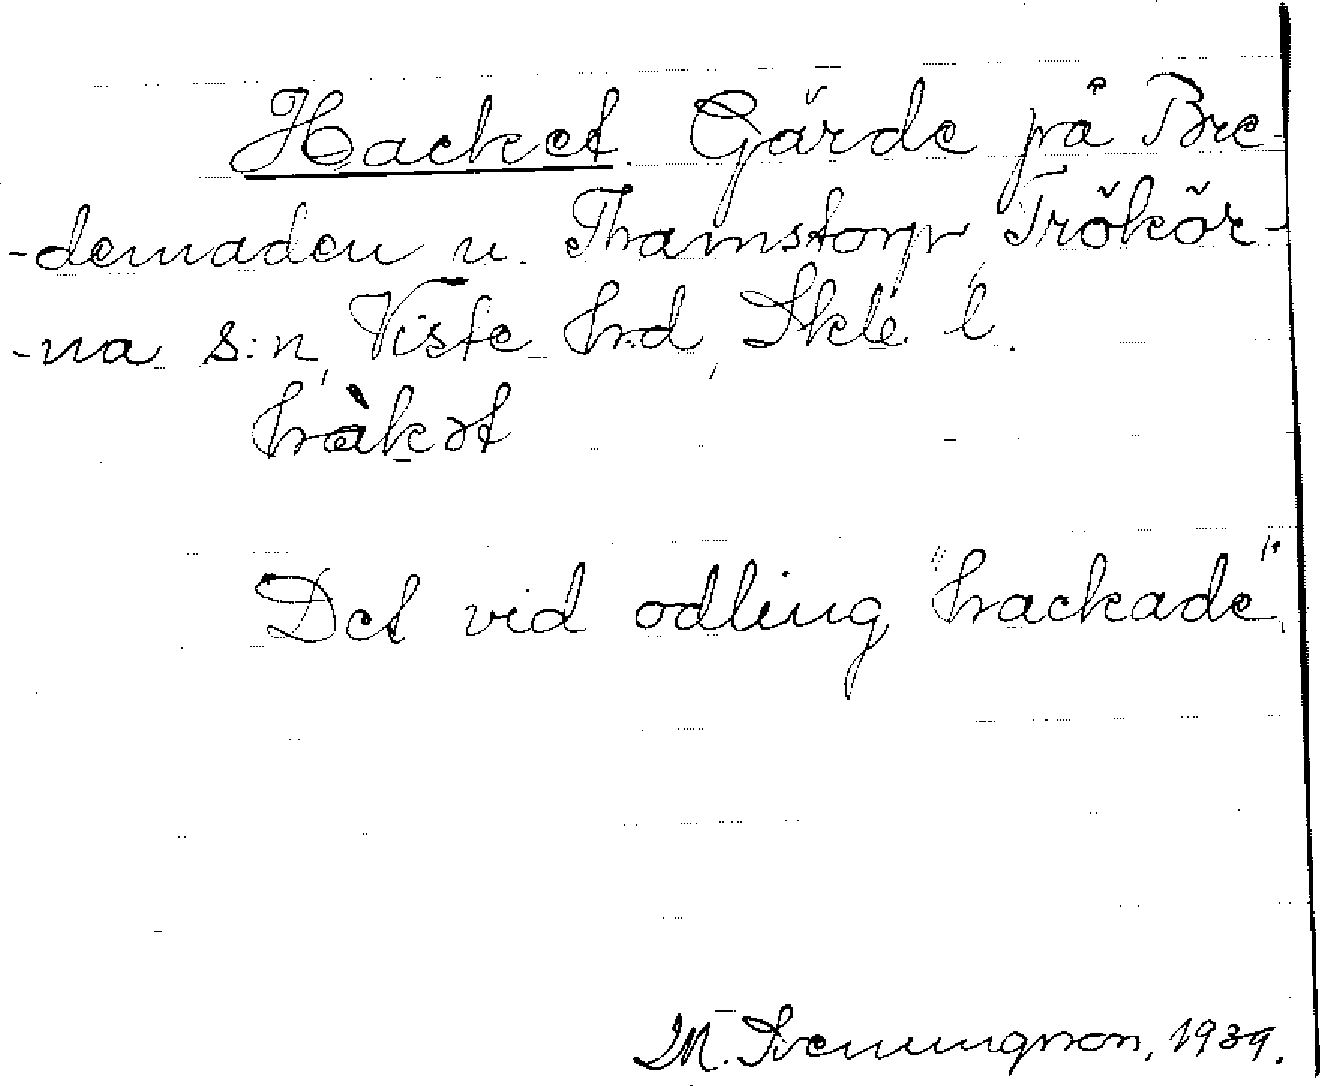 Hacket. Gärde på Bre-
-demaden u. Thamstorp, Trökör-
-na s:n, Viste hrd, Skb. l.
hàkət
Det vid odling "hackade".
M. Svenungsson, 1939.